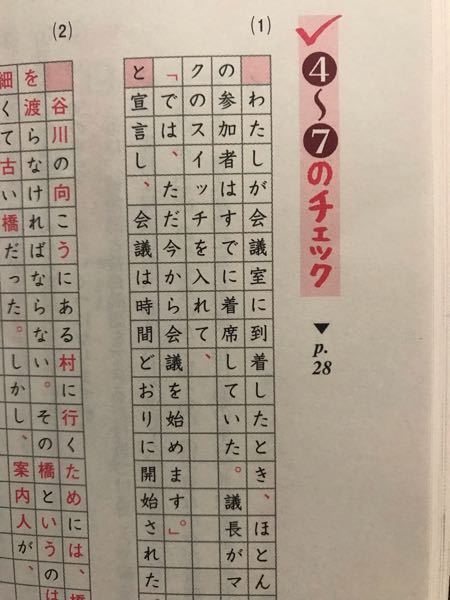 ❹〜❼のチェック
▼p.28
(1)
わたしが会議室に到着したとき、ほとん
の参加者はすでに着席していた。議長がマ
クのスイッチを入れて、
「では、ただ今から会議を始めます。」
と宣言し、会議は時間どおりに開始された
(2)
谷川の向こうにある村に行くためには、橋
を渡らなければならない。その橋というのは
細くて古い橋だった。しかし、案内人が、